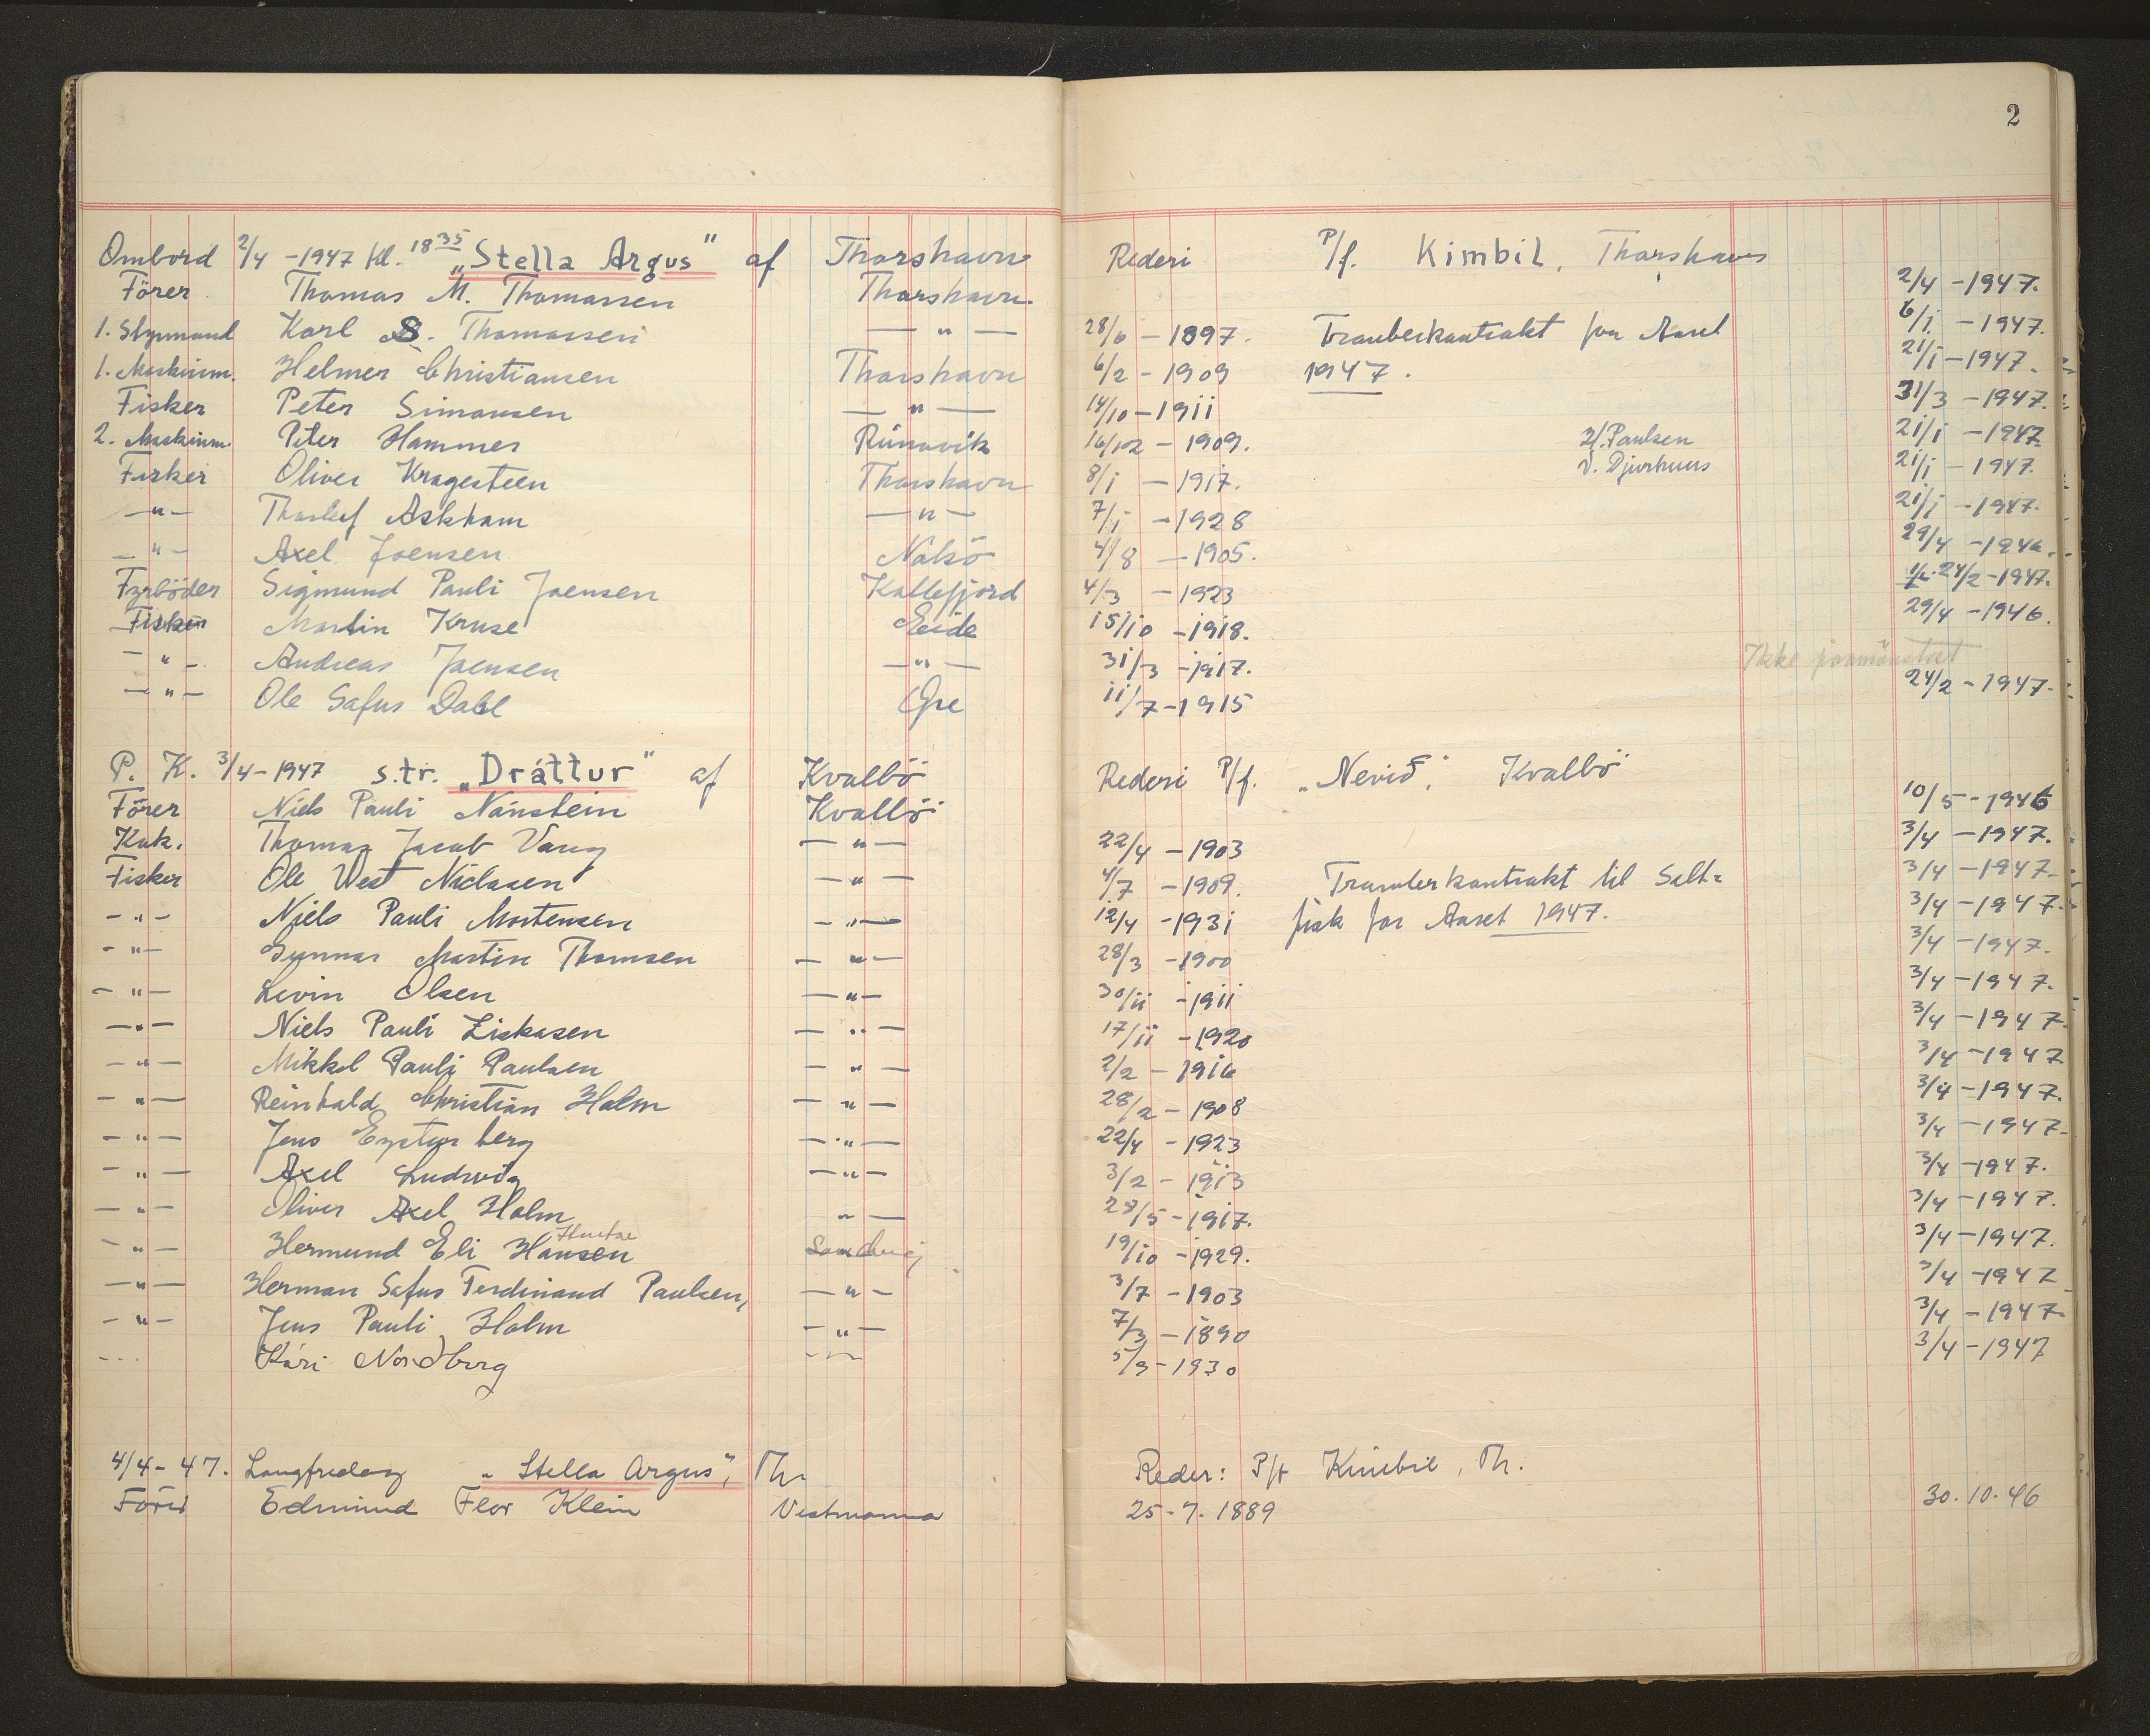 2
Ombord 2/4 - 1947 kl. 18 35 „Stella Argus" af Thorshavn Rederi P/f. Kimbil, Thorshavn
Förer Thomas M. Thomassen Thorshavn. 2/4 - 1947.
1. Styrmand Karl S. Thomassen — " — 28/6 - 1897. Trawlerkontrakt for Aaret 6/1 - 1947.
1. Maskinm. Helmer Christiansen Thorshavn 6/2 - 1909 1947. 21/1 - 1947.
Fisker Peter Simonsen — " — 14/10 - 1911 31/3 - 1947.
2. Maskinm. Peter Hammer Rúnavík 16/12 - 1909. H. Paulsen 21/1 - 1947.
Fisker Oliver Kragesteen Thorshavn 8/1 - 1917. V. Djurhuus 21/1 - 1947.
— " — Thorleif Askham — " — 7/1 - 1928 21/1 - 1947.
— " — Axel Joensen Nolsö 4/8 - 1905. 29/4 - 1946.
Fyrböder Sigmund Pauli Joensen Kollefjord 4/3 - 1923 24/2 - 1947.
Fisker Martin Kruse Eide 15/10 - 1918. 29/4 - 1946.
— " — Andreas Joensen — " — 31/3 - 1917. Ikke paamönstret
— " — Ole Jafus Dahl Gre 11/7 - 1915 24/2 - 1947.
P. K. 3/4 - 1947 s.tr. „Dráttur" af Kvalbö Rederi P/f. „Nevið", Kvalbö
Förer Niels Pauli Nónstein Kvalbö 10/5 - 1946
Kok. Thomas Jacob Vang — " — 22/4 - 1903 3/4 - 1947.
Fisker Ole West Niclasen — " — 4/7 - 1909. Trawlerkontrakt til Salt= 3/4 - 1947.
— " — Niels Pauli Mortensen — " — 12/4 - 1931 fisk for Aaret 1947. 3/4 - 1947.
— " — Gunnar Martin Thomsen — " — 28/3 - 1900 3/4 - 1947.
— " — Levin Olsen — " — 30/11 - 1911 3/4 - 1947.
— " — Niels Pauli Ziskasen — " — 17/11 - 1920 3/4 - 1947
— " — Mikkel Pauli Paulsen — " — 2/2 - 1916 3/4 - 1947
— " — Reinhold Christian Holm — " — 28/2 - 1908 3/4 - 1947.
— " — Jens Eysturberg — " — 22/4 - 1923 3/4 - 1947.
— " — Axel Ludvig — " — 3/2 - 1913 3/4 - 1947.
— " — Oliver Axel Holm " — 28/5 - 1917. 3/4 - 1947.
— " — Hermund Eli Hansen Sandvig 19/10 - 1929. 3/4 - 1947.
— " — Herman Jafus Ferdinand Paulsen, — " — 3/7 - 1903 3/4 - 1947
— " — Jens Pauli Holm — " — 7/3 - 1890 3/4 - 1947
- - - Kári Nordberg - - - 5/9 - 1930 3/4 - 1947
4/4 - 47. Langfredag „Stella Argus", Th. Reder: P/f Kimbil, Th.
Förer Edmund Flor Klein Vestmanna 25-7. 1889 30.10.46